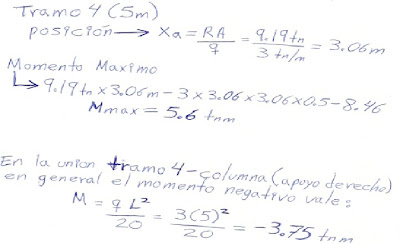 Tramo 4 (5m)
posición → Xa = RA/q = 9.19tn/3 tn/m = 3.06m
Momento Maximo
↳ 9.19tn x 3.06m - 3 x 3.06 x 3.06 x 0.5 - 8.46
Mmax = 5.6 tnm
En la union tramo 4-columna (apoyo derecho)
en general el momento negativo vale:
M = qL²/20 = 3(5)²/20 = -3.75 tnm